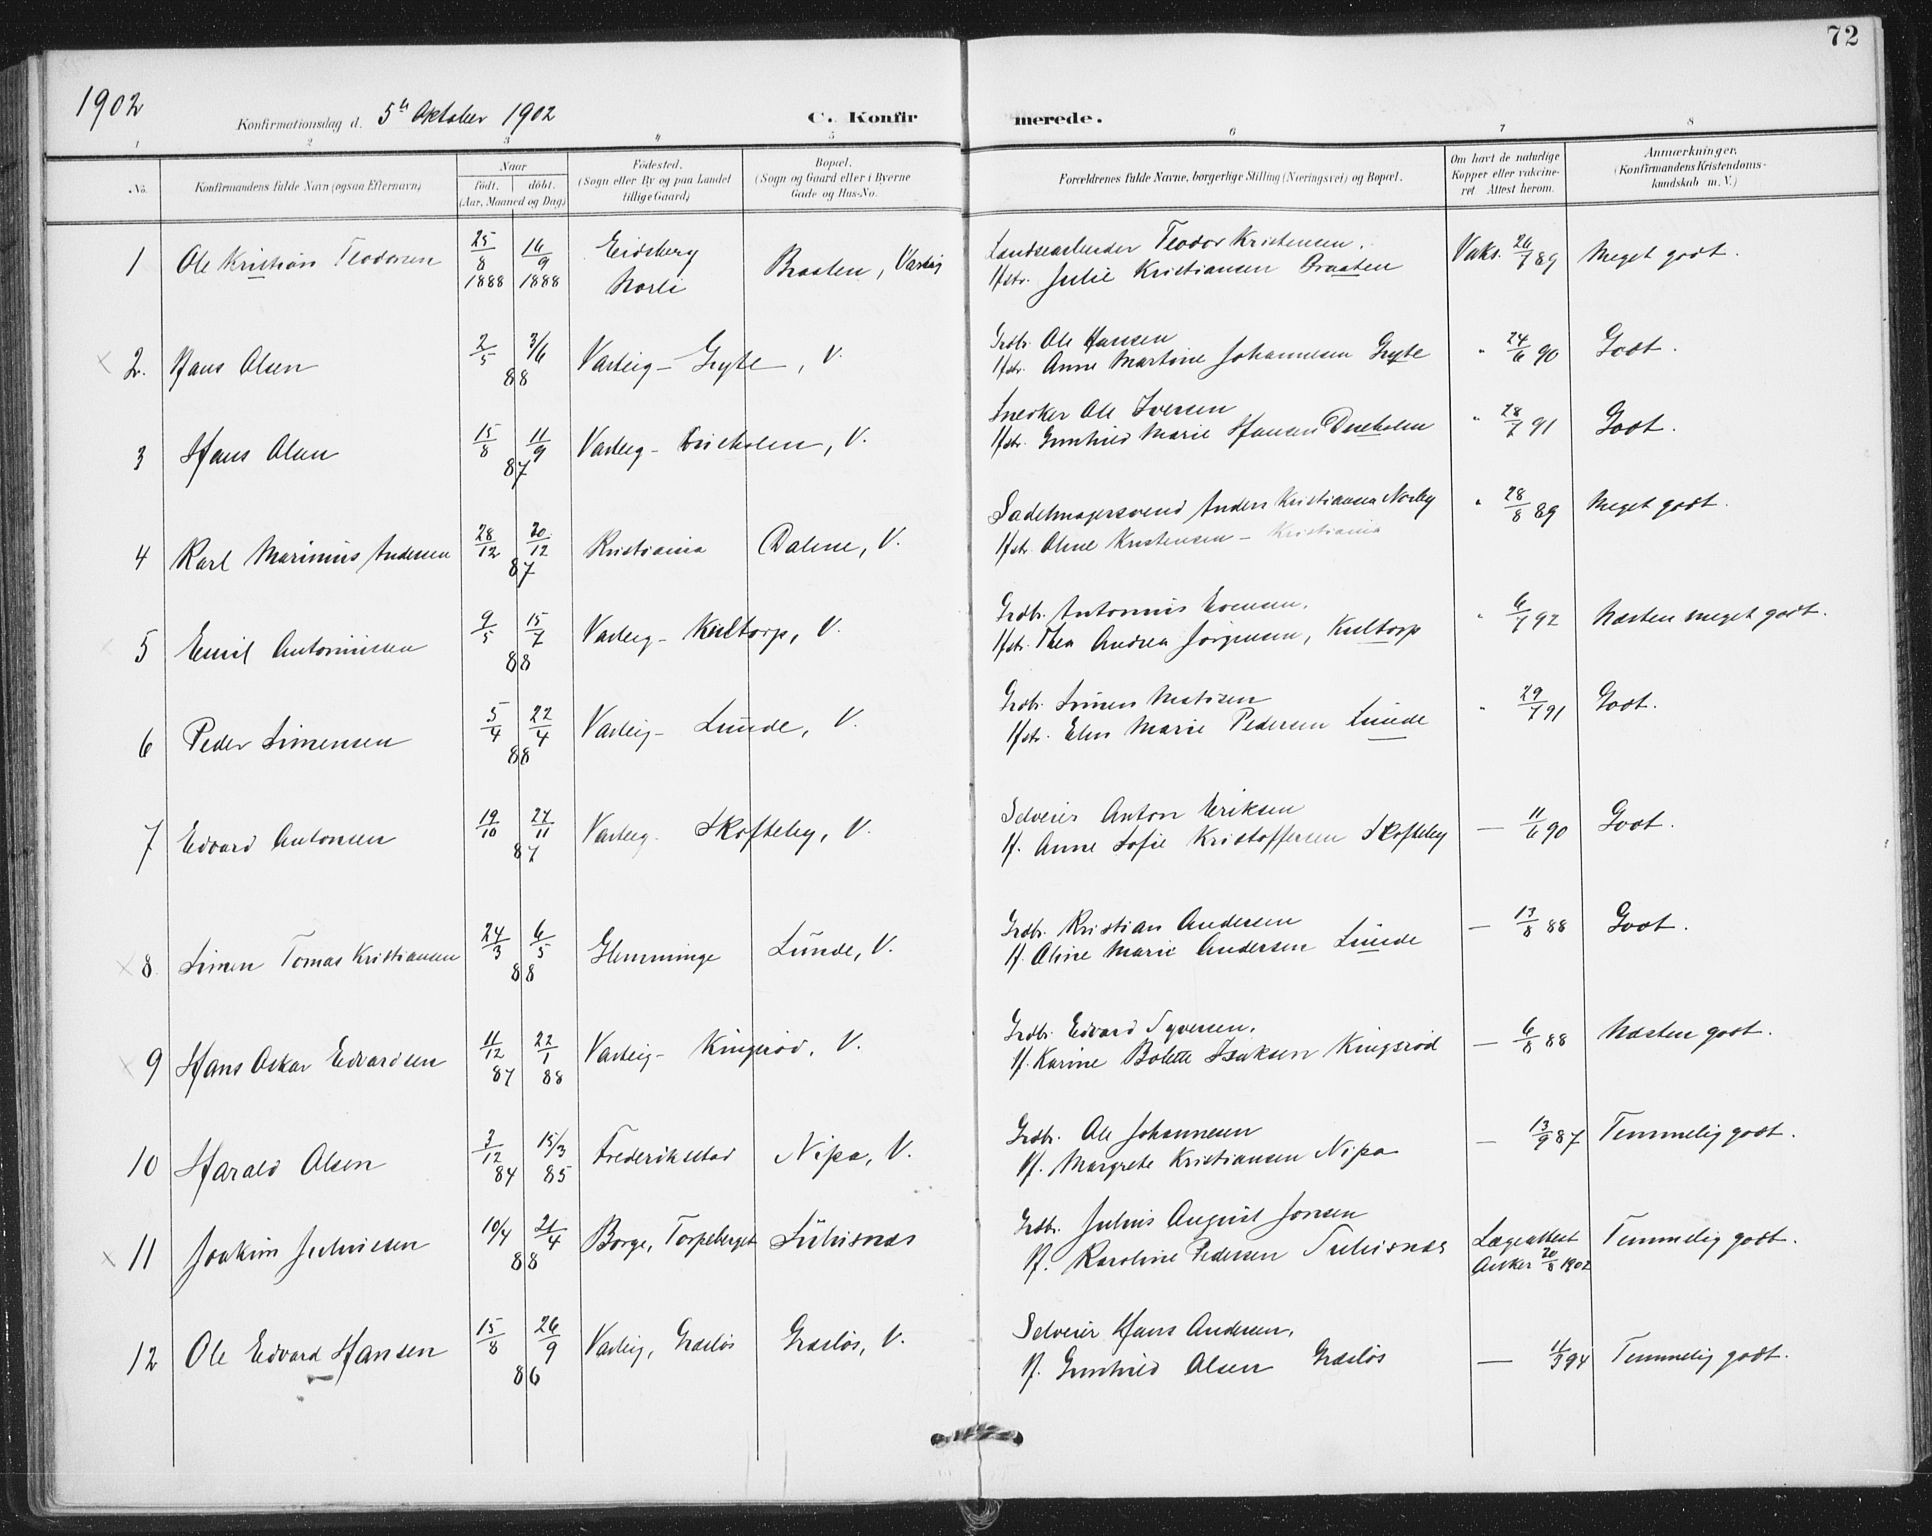 72
1902
Konfirmationsdag d. 5te Oktober 1902 C. Konfirmerede.
1 2 3 4 5 6 7 8
No. Konfirmandens fulde Navn (ogsaa Efternavn) Naar født. døbt. (Aar, Maaned og Dag) Fødested. (Sogn eller By og paa Landet tillige Gaard) Bopæl. (Sogn og Gaard eller i Byerne Gade og Hus-No. Forældrenes fulde Navne, borgerlige Stilling (Næringsvei) og Bopæl. Om havt de naturlige Kopper eller vakcineret. Attest herom. Anmærkninger. (Konfirmandens Kristendomskundskab m. V.)
1 Ole Kristian Teodorsen 25/8 1888 16/9 1888 Eidsberg Norli Braaten, Varteig Teodor Kristensen. Vaks. 26/7 89 Meget godt.
Hstr. Julie Kristiansen Braaten
2. Hans Olsen 2/5 3/6 88 Varteig - Gryte, V. Grdbr. Ole Hansen " 24/6 90 Godt.
Hstr. Anne Martine Johannesen Gryte
3 Hans Olsen 15/8 11/9 87 Varteig - V. Snedker Ole Iversen " 28/7 91 Godt.
Hstr. Gunhild Marie Hansen
4 Karl Marinius Andersen 28/12 20/12 87 Kristiania Dalene, V. Sadelmagersvend Anders Kristiansen Norby " 28/8 89 Meget godt.
Hstr. Oline Kristensen - Kristiania
5 Emil Antonissen 9/5 15/7 88 Varteig - Kultorp, V. Grdbr. Antonius Evensen. " 6/7 92 Næsten meget godt.
Hstr. Thea Andrea Jørgensen, Kultorp
6 Peder Simensen 5/4 22/4 88 Varteig - Lunde, V. Grdbr. Simen Matisen " 29/7 91 Godt.
Hstr. Elen Marie Pedersen Lunde
7 Edvard Antonsen 19/10 27/11 87 Varteig - Skofteby, V. Selveier Anton Eriksen — 11/6 90 Godt.
H. Anne Sofie Kristoffersen Skofteby
8 Simen Tomas Kristiansen 24/3 6/5 88 Glemminge Lunde, V. Grdbr. Kristian Andersen — 13/8 88 Godt.
H. Oline Marie Andersen Lunde
9 Hans Oskar Edvardsen 11/12 87 22/1 88 Varteig - Kingsrød, V. Grdbr. Edvard Syversen. — 6/8 88 Næsten godt.
H. Karine Bolette Isaksen Kingsrød
10 Harald Olsen 3/12 84 15/3 85 Frederikstad Nipa, V. Grdbr. Ole Johannesen — 13/9 87 Temmelig godt.
H. Margrete Kristiansen Nipa
11 Joakim Juliussen 10/4 21/4 88 Borge, Torpeberget Julius August Jonsen Lægeattest Temmelig godt.
H. Karoline Pedersen Anker 20/8 1902
12 Ole Edvard Hansen 15/8 26/9 86 Varteig, Græsløs Græsløs, V. Selveier Hans Andersen. — 94 Temmelig godt.
H. Gunhild Olsen Græsløs